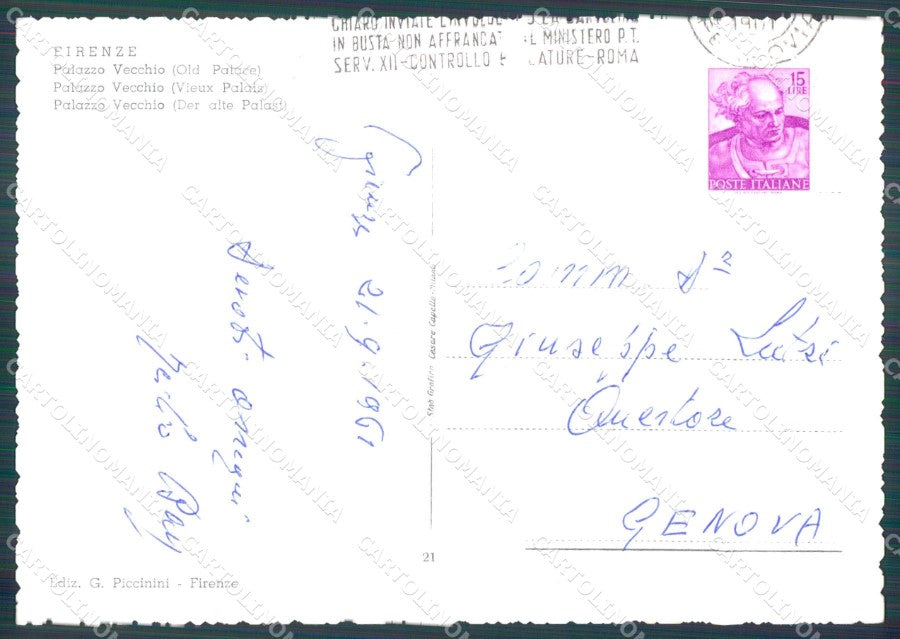 FIRENZE
Palazzo Vecchio (Old Palace)
Palazzo Vecchio (Vieux Palais)
Palazzo Vecchio (Der alte Palast)
CHIARO INVIATE
IN BUSTA NON AFFRANCAT MINISTERO P.T.
SERV. XII-CONTROLLO ATURE-ROMA
15
LIRE
POSTE ITALIANE
Firenze 21.9.1961
Devoti omaggi
Stab Grafico Cesare Capello - Milano
Comm Dr
Giuseppe Luisi
Questore
GENOVA
21
Ediz. G. Piccinini - Firenze
CARTOLINOMANIA